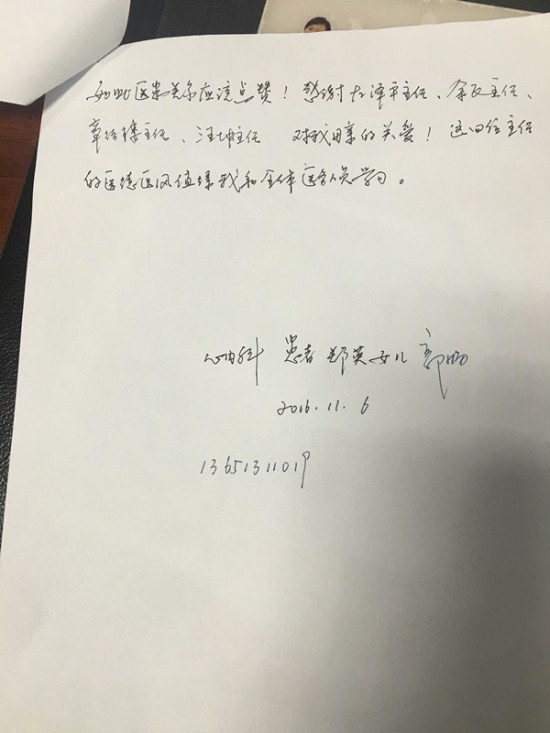 如此医患关系应该点赞！感谢左泽平主任、余文主任、
章 主任、汪 主任 对我母亲的关爱！这四位主任
的医德医风值得我和全体医务人员学习。
心内科 患者 郑英女儿 郭
2016.11.6
13651311019